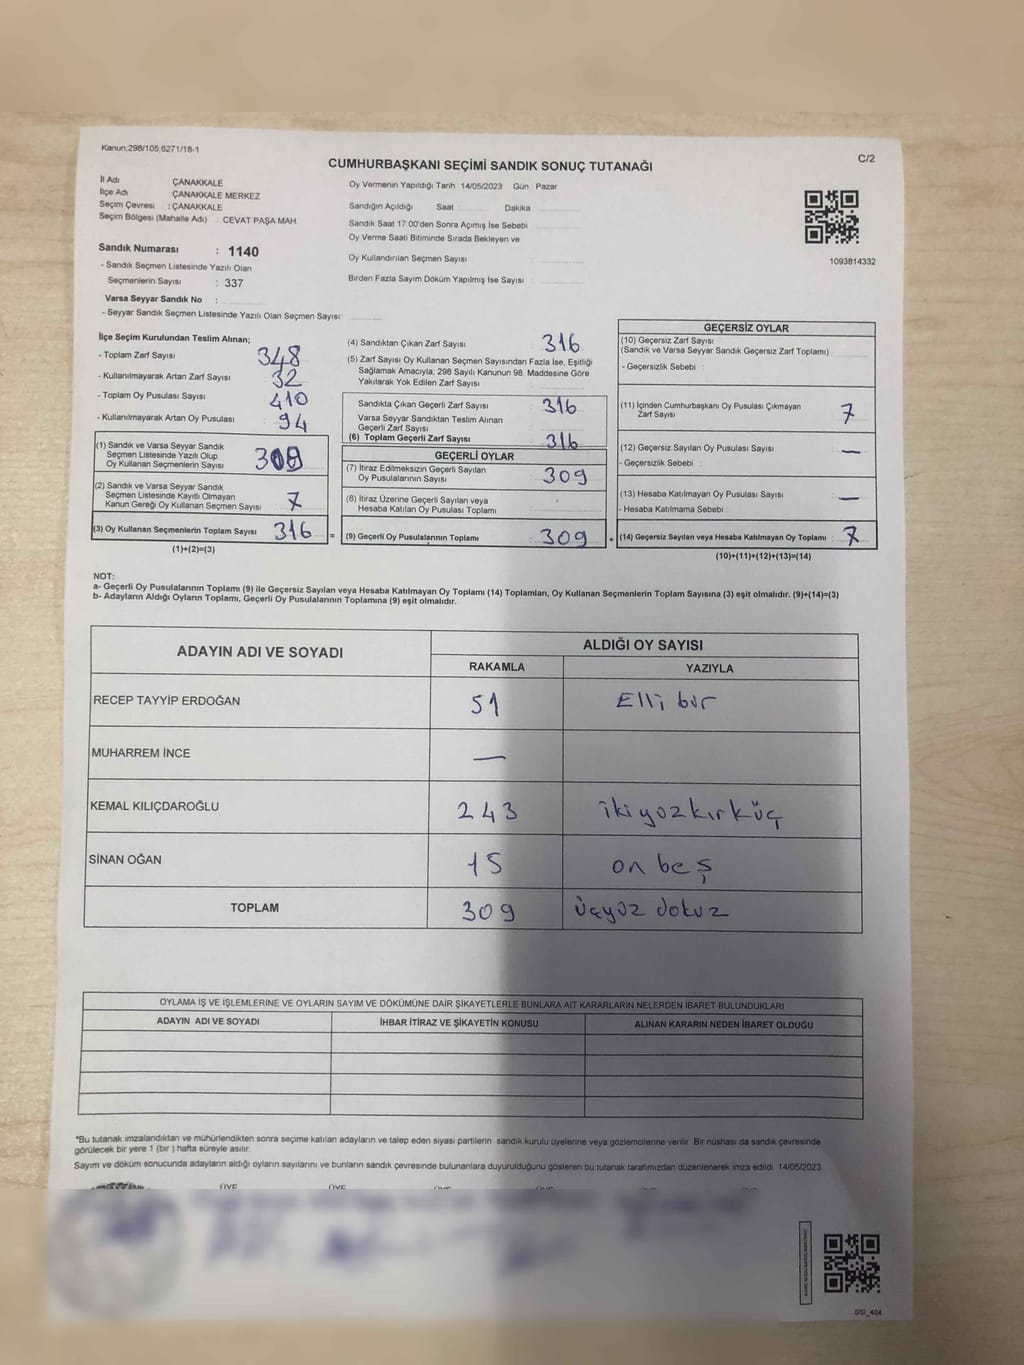 Kanun:298/105;6271/18-1
C/2
CUMHURBAŞKANI SEÇİMİ SANDIK SONUÇ TUTANAĞI
İl Adı ÇANAKKALE
İlçe Adı ÇANAKKALE MERKEZ
Seçim Çevresi :ÇANAKKALE
Seçim Bölgesi (Mahalle Adı) : CEVAT PAŞA MAH
Sandık Numarası : 1140
- Sandık Seçmen Listesinde Yazılı Olan
Seçmenlerin Sayısı : 337
Varsa Seyyar Sandık No :
- Seyyar Sandık Seçmen Listesinde Yazılı Olan Seçmen Sayısı:
Oy Vermenin Yapıldığı Tarih 14/05/2023 Gün : Pazar
Sandığın Açıldığı Saat Dakika
Sandık Saat 17:00'den Sonra Açımış İse Sebebi
Oy Verme Saati Bitiminde Sırada Bekleyen ve
Oy Kullandırılan Seçmen Sayısı :
Birden Fazla Sayım Döküm Yapılmış İse Sayısı :
1093814332
İlçe Seçim Kurulundan Teslim Alınan;
- Toplam Zarf Sayısı 348
- Kullanılmayarak Artan Zarf Sayısı 32
- Toplam Oy Pusulası Sayısı 410
- Kullanılmayarak Artan Oy Pusulası : 94
(1) Sandık ve Varsa Seyyar Sandık
Seçmen Listesinde Yazılı Olup
Oy Kullanan Seçmenlerin Sayısı : 309
(2) Sandık ve Varsa Seyyar Sandık
Seçmen Listesinde Kayıtlı Olmayan
Kanun Gereği Oy Kullanan Seçmen Sayısı : 7
(3) Oy Kullanan Seçmenlerin Toplam Sayısı : 316 =
(1)+(2)=(3)
(4) Sandıktan Çıkan Zarf Sayısı : 316
(5) Zarf Sayısı Oy Kullanan Seçmen Sayısından Fazla İse, Eşitliği
Sağlamak Amacıyla, 298 Sayılı Kanunun 98. Maddesine Göre
Yakılarak Yok Edilen Zarf Sayısı :
Sandıkta Çıkan Geçerli Zarf Sayısı : 316
Varsa Seyyar Sandıktan Teslim Alınan
Geçerli Zarf Sayısı :
(6) Toplam Geçerli Zarf Sayısı : 316
GEÇERLİ OYLAR
(7) İtiraz Edilmeksizin Geçerli Sayılan
Oy Pusulalarının Sayısı : 309
(8) İtiraz Üzerine Geçerli Sayılan veya
Hesaba Katılan Oy Pusulası Toplamı :
(9) Geçerli Oy Pusulalarının Toplamı : 309 +
GEÇERSİZ OYLAR
(10) Geçersiz Zarf Sayısı
(Sandık ve Varsa Seyyar Sandık Geçersiz Zarf Toplamı)
- Geçersizlik Sebebi :
(11) İçinden Cumhurbaşkanı Oy Pusulası Çıkmayan
Zarf Sayısı : 7
(12) Geçersiz Sayılan Oy Pusulası Sayısı : —
- Geçersizlik Sebebi :
(13) Hesaba Katılmayan Oy Pusulası Sayısı : —
- Hesaba Katılmama Sebebi :
(14) Geçersiz Sayılan veya Hesaba Katılmayan Oy Toplamı : 7
(10)+(11)+(12)+(13)=(14)
NOT:
a- Geçerli Oy Pusulalarının Toplamı (9) ile Geçersiz Sayılan veya Hesaba Katılmayan Oy Toplamı (14) Toplamları, Oy Kullanan Seçmenlerin Toplam Sayısına (3) eşit olmalıdır. (9)+(14)=(3)
b- Adayların Aldığı Oyların Toplamı, Geçerli Oy Pusulalarının Toplamına (9) eşit olmalıdır.
ADAYIN ADI VE SOYADI ALDIĞI OY SAYISI
RAKAMLA YAZIYLA
RECEP TAYYİP ERDOĞAN 51 Elli bir
MUHARREM İNCE —
KEMAL KILIÇDAROĞLU 243 ikiyüzkırküç
SİNAN OĞAN 15 on beş
TOPLAM 309 üçyüz dokuz
OYLAMA İŞ VE İŞLEMLERİNE VE OYLARIN SAYIM VE DÖKÜMÜNE DAİR ŞİKAYETLERLE BUNLARA AİT KARARLARIN NELERDEN İBARET BULUNDUKLARI
ADAYIN ADI VE SOYADI İHBAR İTİRAZ VE ŞİKAYETİN KONUSU ALINAN KARARIN NEDEN İBARET OLDUĞU
*Bu tutanak imzalandıktan ve mühürlendikten sonra seçime katılan adayların ve talep eden siyasi partilerin sandık kurulu üyelerine veya gözlemcilerine verilir. Bir nüshası da sandık çevresinde
görülecek bir yere 1 (bir ) hafta süreyle asılır.
Sayım ve döküm sonucunda adayların aldığı oyların sayılarını ve bunların sandık çevresinde bulunanlara duyurulduğunu gösteren bu tutanak tarafımızdan düzenlenerek imza edildi. 14/05/2023
ÜYE ÜYE